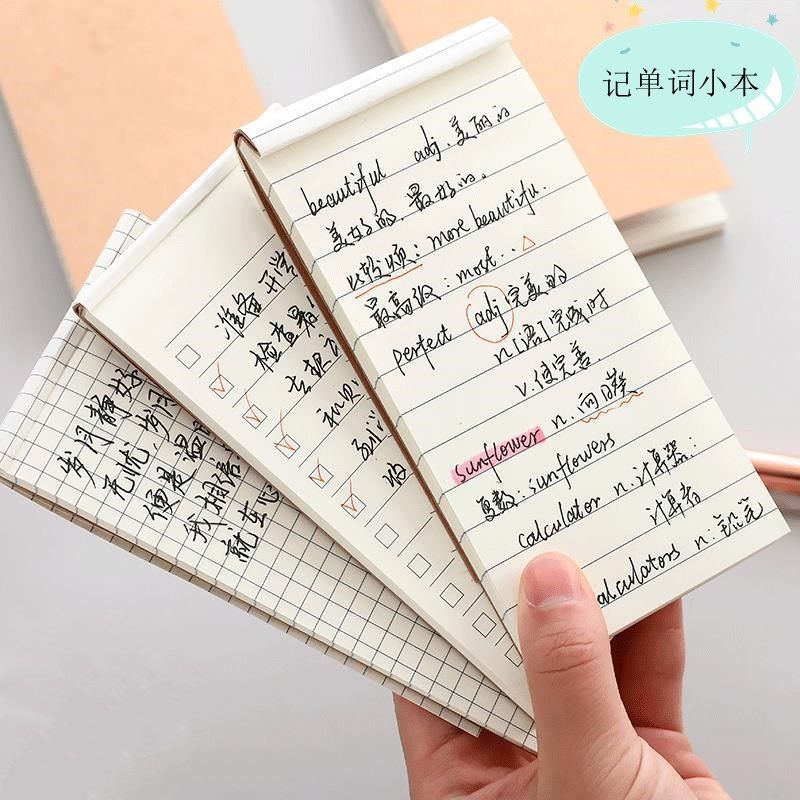 记单词小本
beautiful adj. 美丽的
美好的. 最好的.
比较级: more beautiful.
最高级: most..
perfect adj 完美的
n.(语)完成时
v. 使完善.
sunflower n. 向日葵
复数: sunflowers
calculator n. 计算器;
计算者
alculators n:
准备开学
检查暑
去
和
到
岁月静好
无忧 岁月
便是温
我相信
就在心